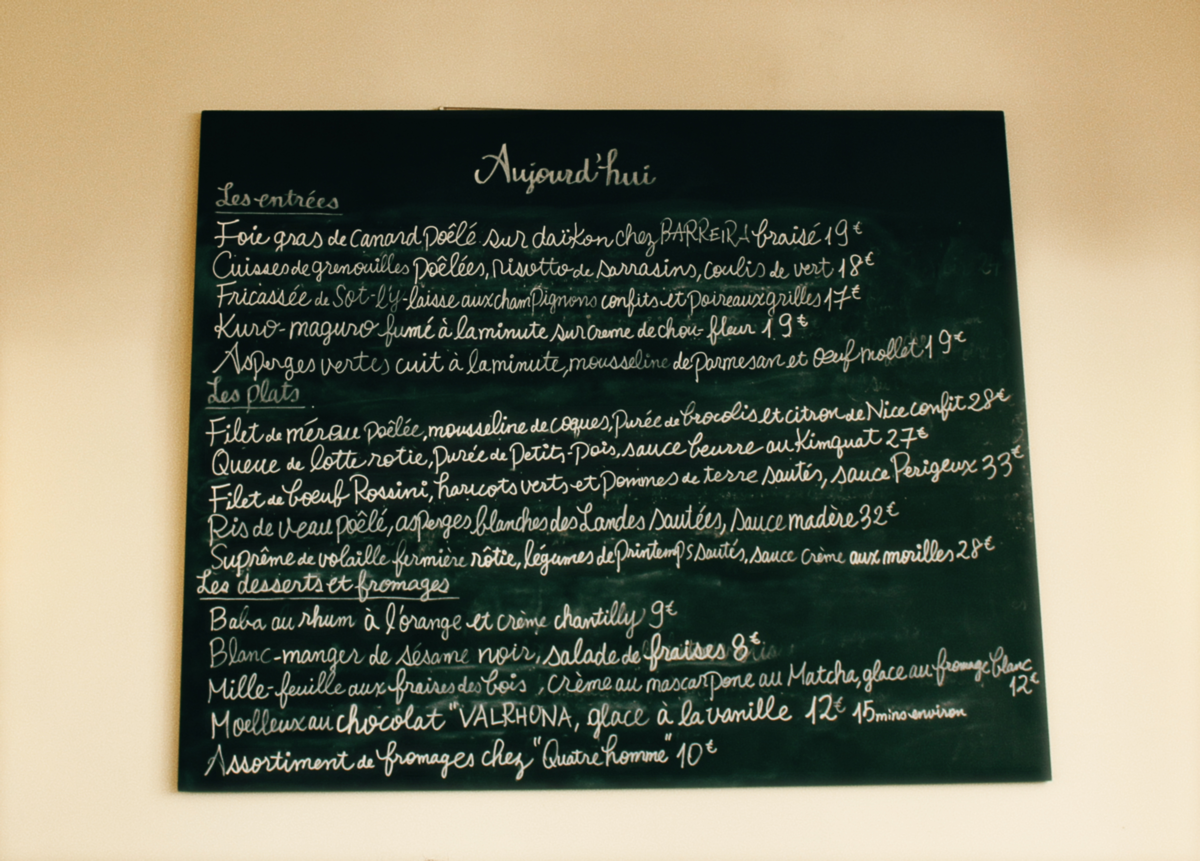 Aujourd'hui
Les entrées
Foie gras de canard poêlé sur daïkon chez BARREIRA braisé 19€
Cuisses de grenouilles poêlées, risotto de sarrasins, coulis de vert 18€
Fricassée de Sot-l'y-laisse aux champignons confits et poireaux grillés 17€
Kuro-maguro fumé à la minute sur creme de chou-fleur 19€
Asperges vertes cuit à la minute, mousseline de parmesan et œuf mollet 19€
Les plats
Filet de mérou poêlée, mousseline de coques, purée de brocolis et citron de Nice confit 28€
Queue de lotte rotie, purée de Petits-Pois, sauce beurre au Kimquat 27€
Filet de bœuf Rossini, haricots verts et pommes de terre sautés, sauce Périgeux 33€
Ris de veau poêlé, asperges blanches des Landes sautées, sauce madère 32€
Suprême de volaille fermière rôtie, légumes de printemps sautés, sauce crème aux morilles 28€
Les desserts et fromages
Baba au rhum à l'orange et crème chantilly 9€
Blanc-manger de sésame noir, salade de fraises 8€
Mille-feuille aux fraises des bois, crème au mascarpone au Matcha, glace au fromage blanc
12€
Moelleux au chocolat "VALRHONA, glace à la vanille 12€ 15 mins environ
Assortiment de fromages chez "Quatre homme" 10€